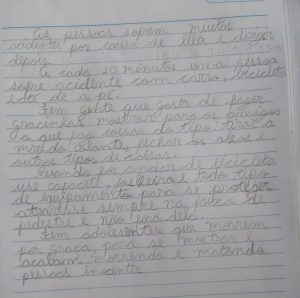 As pessoas sofrem muitos
acidentes por causa de beber e dirigir
depois.
A cada 10 minutos uma pessoa
sofre acidente com carro, bicicleta
e até de a pé.
Tem gente que gosta de fazer
gracinhas mostrar para os amigos
o que faz coisas do tipo tirar a
mão do volante, fechar os olhos e
outros tipos de coisas.
Quando for andar de bicicleta
use capacete, e todo tipo
de equipamento para se proteger
atravesse sempre na faixa de
pedestre e não fora dela.
Tem adolescentes que morrem
por graça, para se mostrar e
acabam morrendo e matando
pessoas inocentes.